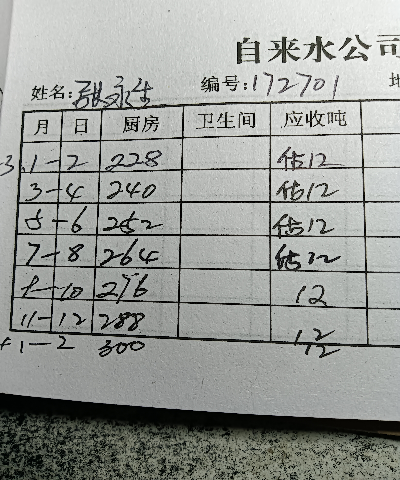 自来水公司
姓名: 张永生 编号: 172701
月 日 厨房 卫生间 应收吨
3. 1-2 228 估12
3-4 240 估12
5-6 252 估12
7-8 264 估12
9-10 276 12
11-12 288 12
1-2 300 12